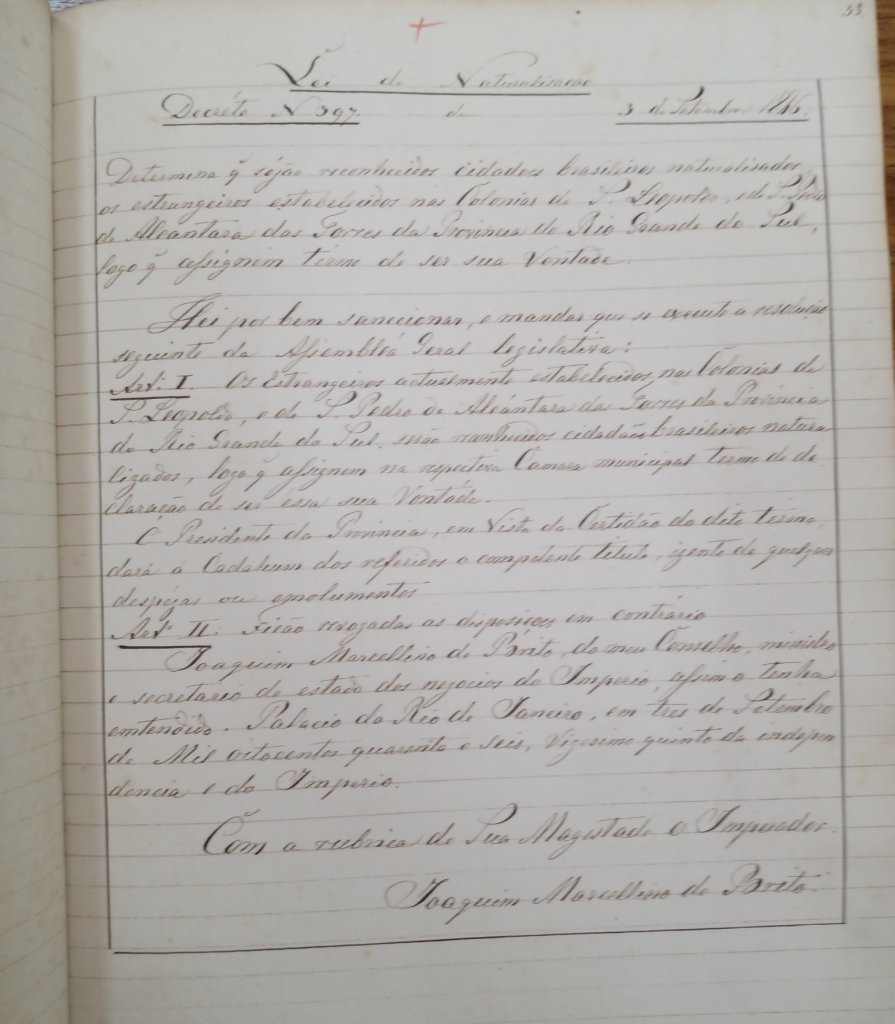 33
Lei de Naturalisação
Decréto N 397. de 3 de Setembro 1846.
Determina q̃ séjão reconhecidos cidadoes brasileiros naturalisados,
os estrangeiros estabelecidos nas Colonias de S. Leopoldo, e de S. Pedro
de Alcantara das Torres da Provincia do Rio Grande do Sul,
logo q̃ assignem termo de ser sua Vontade.
Hei por bem sanccionar, e mandar que se execute a resolução
seguinte da Assembléa Geral legislativa:
Art.º I. Os Estrangeiros actualmente estabelecidos nas Colonias de
S. Leopoldo, e de S. Pedro de Alcántara das Torres da Provincia
do Rio Grande do Sul, serão reconhecidos cidadãos brasileiros natura
lizados, logo q̃ assignem na respectiva Camara municipal termo de de
claração de ser essa sua Vontáde.
O Presidente da Provincia, em Vista da Certidão do dito térmo,
dará á Cadahum dos referidos o competente titulo, izento de qualquer
despezas ou emolumentos
Art.º II. Ficão revogadas as disposicoes em contrário
Joaquim Marcellino de Brito, do meu Conselho, ministro
e secretario de estado dos negocios do Imperio, assim o tenha
emtendido. Palacio do Rio de Janeiro, em tres de Setembro
de Mil oitocentos quarenta e seis, Vigesimo quinto da indepen
dencia e do Imperio.
Com a rubrica de Sua Magestade o Imperador.
Joaquim Marcellino de Brito.